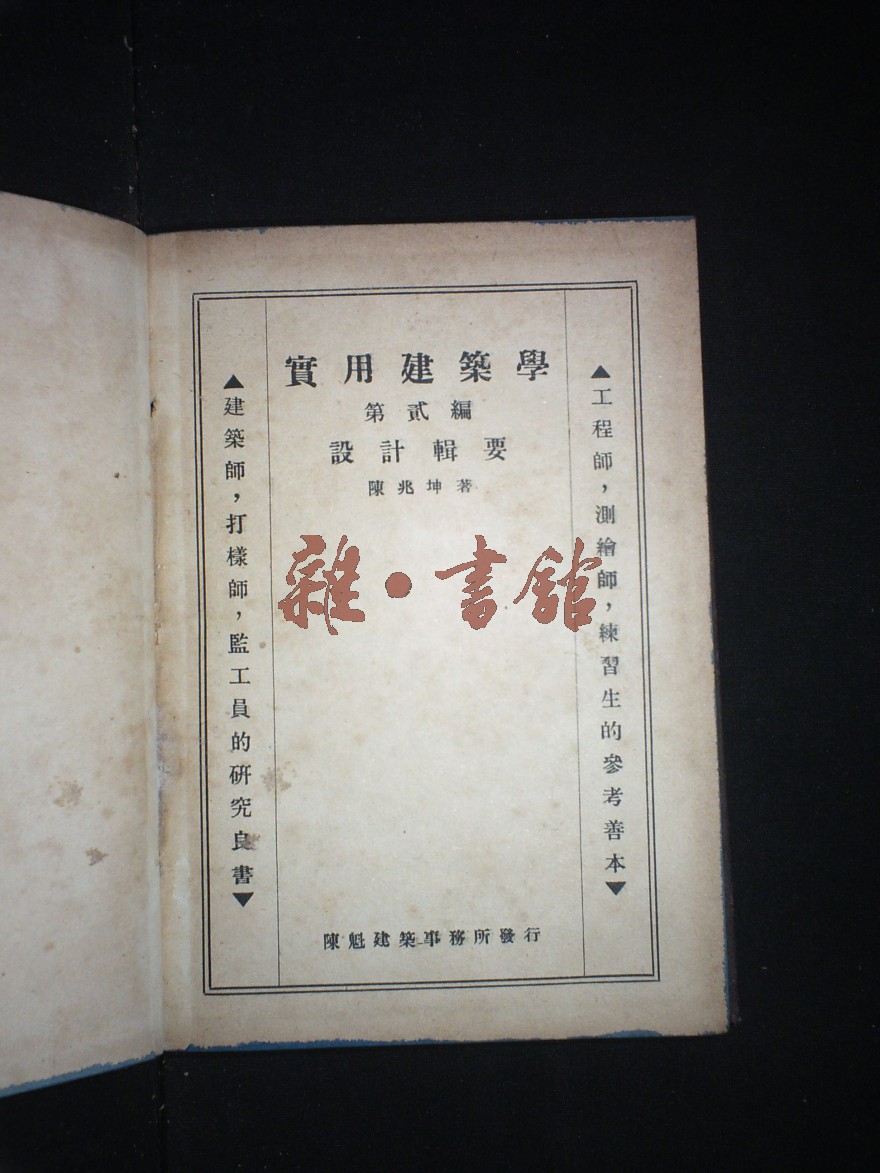 實用建築學
第貳編
設計輯要
陳兆坤著
▲工程師，測繪師，練習生的參考善本▼
▲建築師，打樣師，監工員的研究良書▼
雜·書館
陳魁建築事務所發行